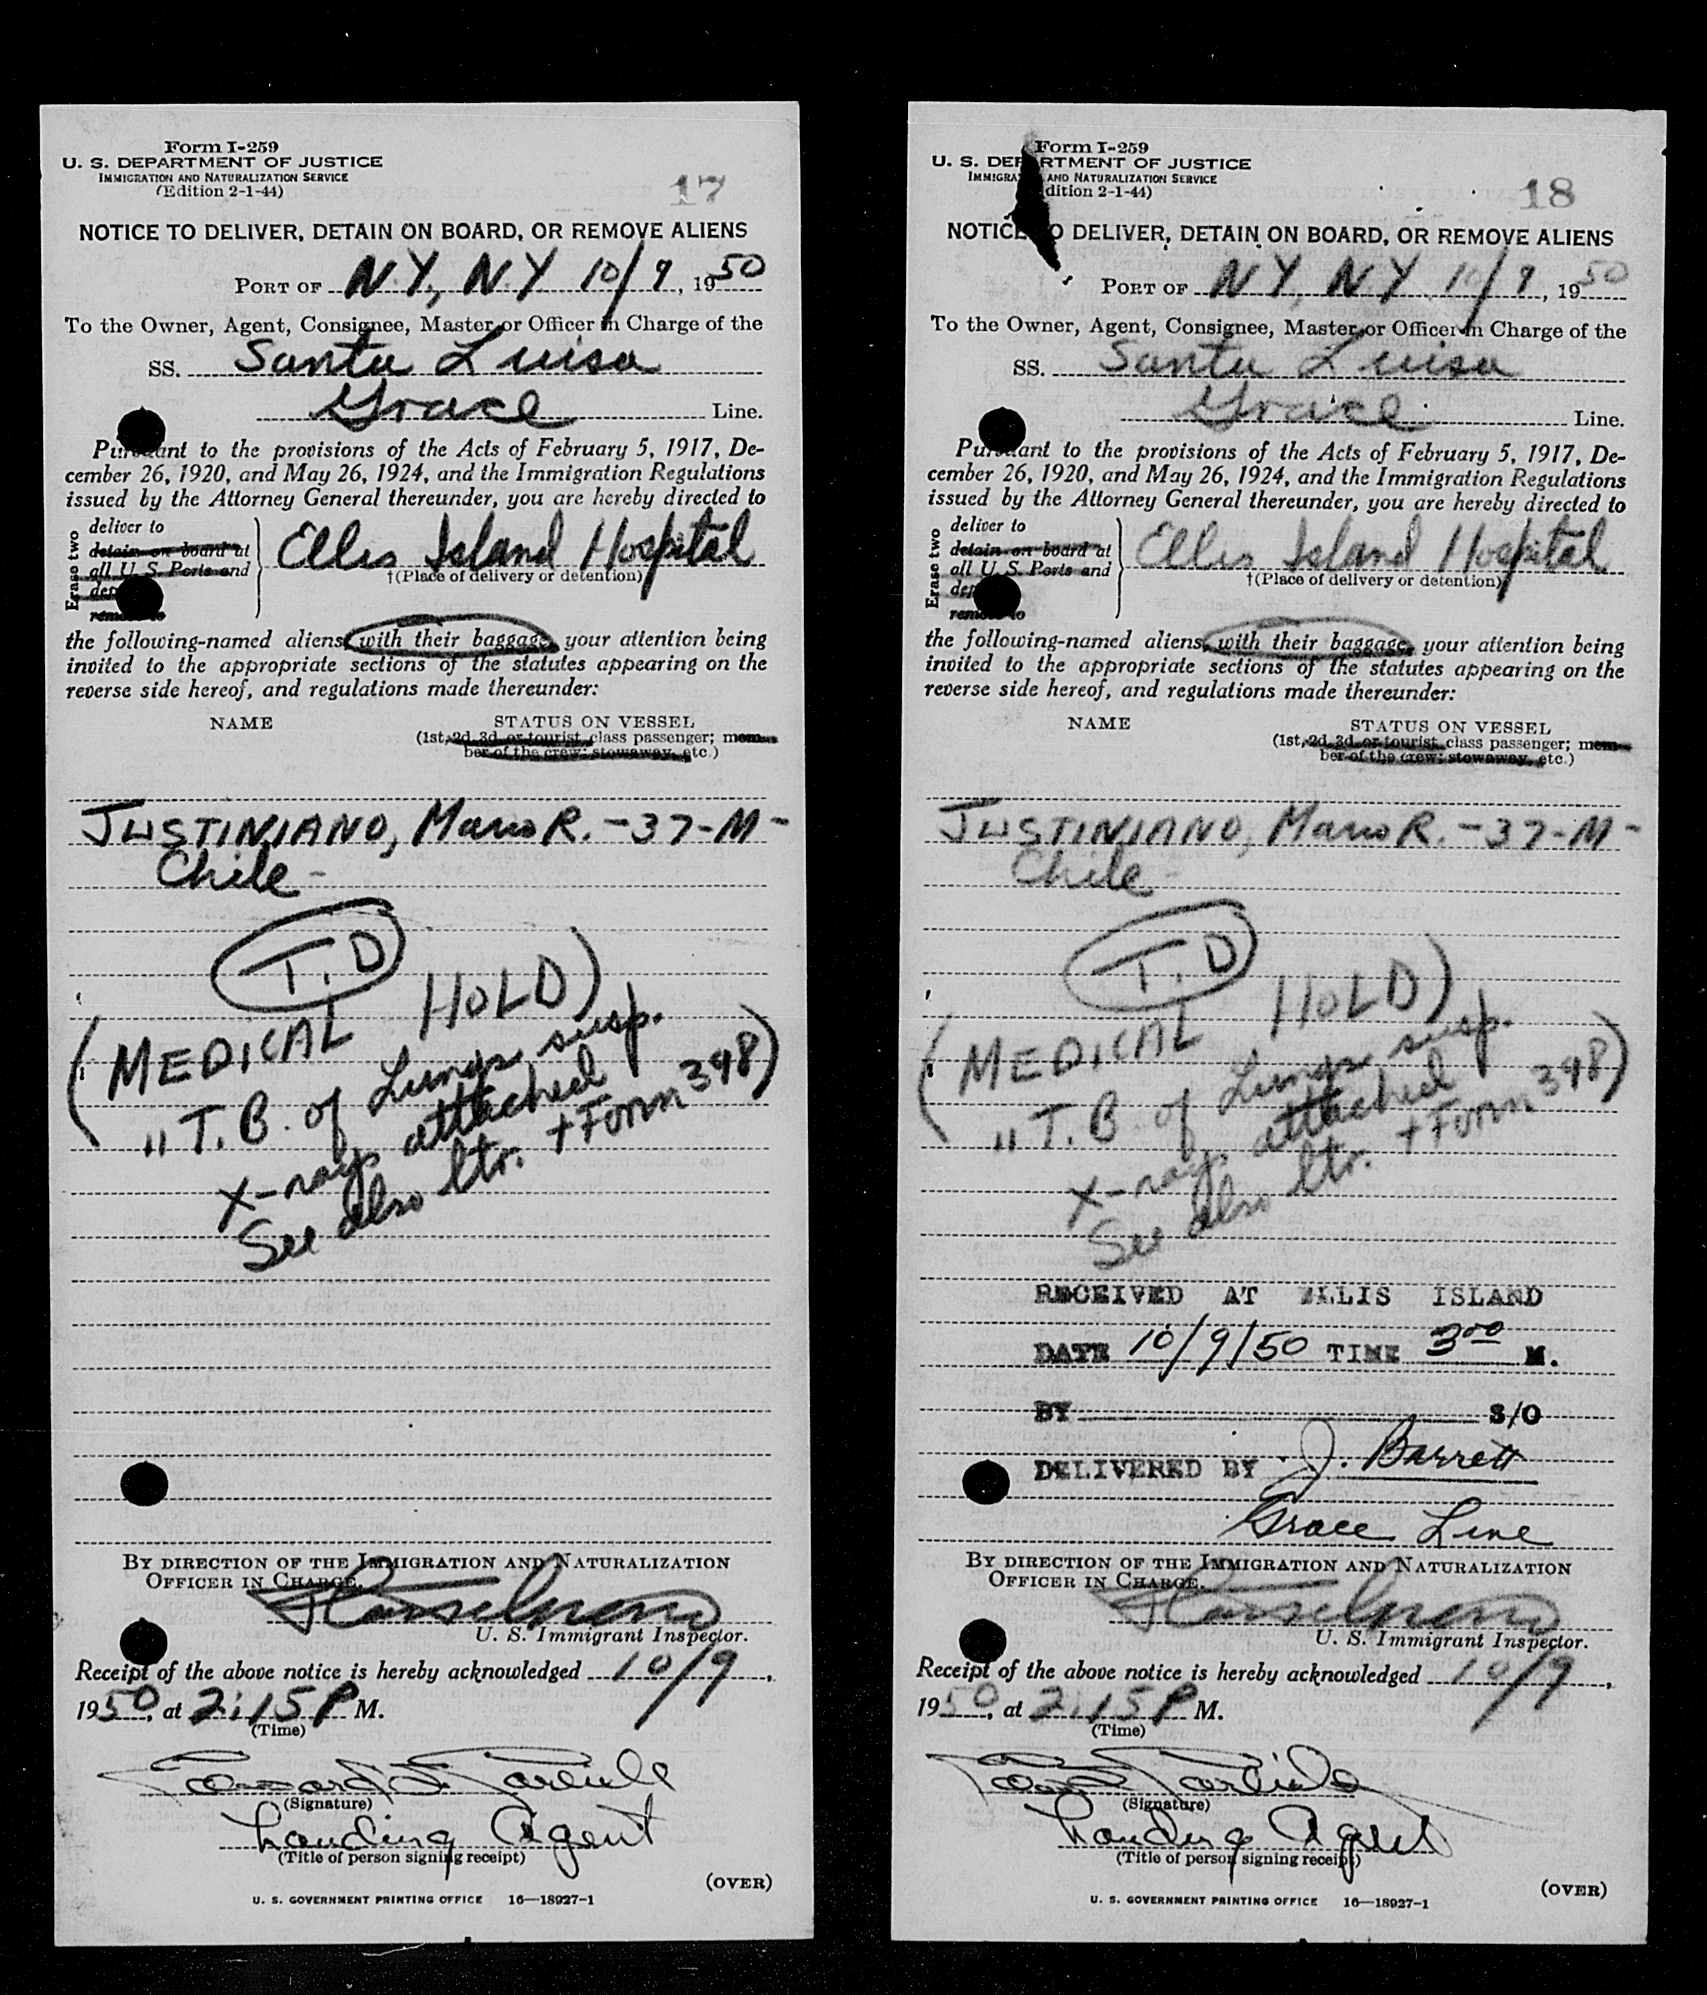 Form I-259
U. S. DEPARTMENT OF JUSTICE
IMMIGRATION AND NATURALIZATION SERVICE
(Edition 2-1-44)
17
NOTICE TO DELIVER, DETAIN ON BOARD, OR REMOVE ALIENS
PORT OF N.Y., N.Y 10/9, 1950
To the Owner, Agent, Consignee, Master or Officer in Charge of the
SS. Santa Luisa
Grace Line.
Pursuant to the provisions of the Acts of February 5, 1917, De-
cember 26, 1920, and May 26, 1924, and the Immigration Regulations
issued by the Attorney General thereunder, you are hereby directed to
Erase two
deliver to
detain on board at
all U. S. Ports and
remove to
Ellis Island Hospital
†(Place of delivery or detention)
the following-named aliens, with their baggage, your attention being
invited to the appropriate sections of the statutes appearing on the
reverse side hereof, and regulations made thereunder:
NAME STATUS ON VESSEL
(1st, 2d, 3d, or tourist class passenger; mem-
ber of the crew; stowaway, etc.)
JUSTINIANO, Mario R. - 37 - M -
Chile -
T.D
(MEDICAL HOLD)
" T.B. of Lungs susp.
X-rays attached
See also ltr. + Form 398)
BY DIRECTION OF THE IMMIGRATION AND NATURALIZATION
OFFICER IN CHARGE.
U. S. Immigrant Inspector.
Receipt of the above notice is hereby acknowledged 10/9,
1950, at 2:15 P M.
(Time)
(Signature)
Landing Agent
(Title of person signing receipt)
(OVER)
U. S. GOVERNMENT PRINTING OFFICE 16—18927-1
Form I-259
U. S. DEPARTMENT OF JUSTICE
IMMIGRATION AND NATURALIZATION SERVICE
(Edition 2-1-44)
18
NOTICE TO DELIVER, DETAIN ON BOARD, OR REMOVE ALIENS
PORT OF N.Y, N.Y 10/9, 1950
To the Owner, Agent, Consignee, Master or Officer in Charge of the
SS. Santa Luisa
Grace Line.
Pursuant to the provisions of the Acts of February 5, 1917, De-
cember 26, 1920, and May 26, 1924, and the Immigration Regulations
issued by the Attorney General thereunder, you are hereby directed to
Erase two
deliver to
detain on board at
all U. S. Ports and
remove to
Ellis Island Hospital
†(Place of delivery or detention)
the following-named aliens, with their baggage, your attention being
invited to the appropriate sections of the statutes appearing on the
reverse side hereof, and regulations made thereunder:
NAME STATUS ON VESSEL
(1st, 2d, 3d, or tourist class passenger; mem-
ber of the crew; stowaway, etc.)
JUSTINIANO, Mario R. - 37 - M -
Chile -
T.D
(MEDICAL HOLD)
" T.B of Lungs susp.
X-rays attached
See also ltr. + Form 398)
RECEIVED AT ELLIS ISLAND
DATE 10/9/50 TIME 3 00 M.
BY S/O
DELIVERED BY J. Barrett
Grace Line
BY DIRECTION OF THE IMMIGRATION AND NATURALIZATION
OFFICER IN CHARGE.
U. S. Immigrant Inspector.
Receipt of the above notice is hereby acknowledged 10/9,
1950, at 2:15 P M.
(Time)
(Signature)
Landing Agent
(Title of person signing receipt)
(OVER)
U. S. GOVERNMENT PRINTING OFFICE 16—18927-1